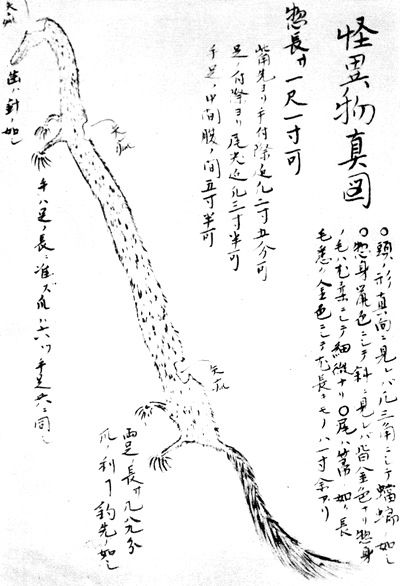 怪異物真図
○頭ノ形真向ニ見レバ凡三角ニシテ蟷螂ノ如シ
○惣身鼠色ニシテ斜ニ見レバ皆金色ナリ惣身
ノ毛ハ甚柔ニシテ細微ナリ○尾ハ箒ノ如ク長
毛悉ク金色ニシテ尤長キモノハ一寸余アリ
惣長サ一尺一寸可
嘴先ヨリ手付際迄凡二寸五分可
足ノ付際ヨリ尾先迄凡三寸半可
手足ノ中間腹ノ間五寸半可
矢疵
矢疵
矢疵
歯ハ針ノ如シ
手ハ足ノ長ニ准ズ爪ハ六ツ手足共ニ同シ
両足ノ長サ凡八九分
爪利ク釣先ノ如シ